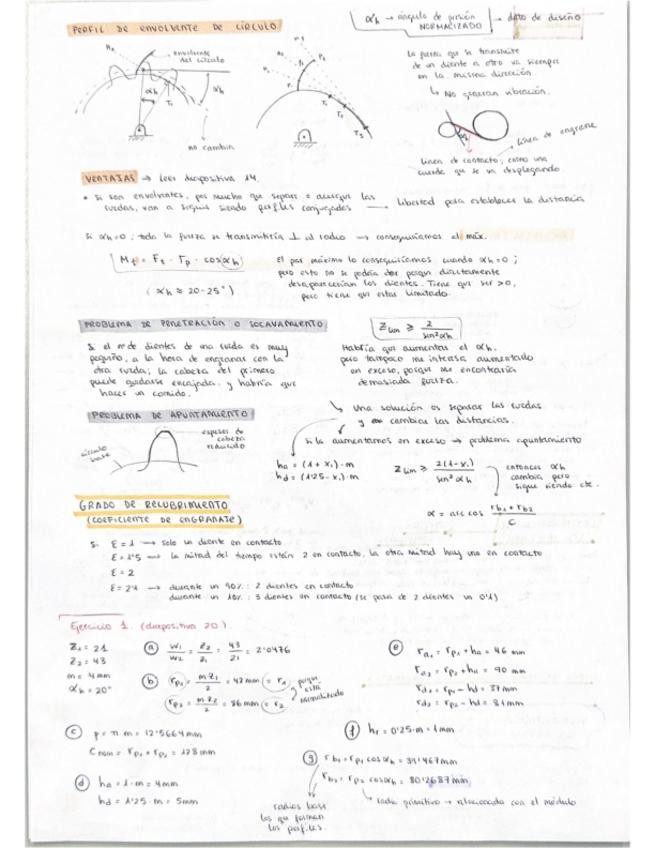 PERFIL DE ENVOLVENTE DE CÍRCULO
αh → ángulo de presión → dato de diseño
NORMALIZADO
envolvente
del círculo
αh
αh
T1
no cambia
T1
T2
T3
La fuerza que se transmite
de un diente a otro va siempre
en la misma dirección.
↳ No generan vibración.
línea de engrane
línea de contacto, como una
cuerda que se va desplegando.
VENTAJAS → leer diapositiva 14.
• Si son envolventes, por mucho que separe o acerque las
ruedas, van a seguir siendo perfiles conjugados → libertad para establecer la distancia
Si αh=0; toda la fuerza se transmitiría ⊥ al radio → conseguiríamos el máx.
Mt = Ft · rp · cosαh
(αh ≈ 20-25°)
El par máximo lo conseguiríamos cuando αh=0;
pero esto no se podría dar porque directamente
desaparecerían los dientes. Tiene que ser >0,
pero tiene que estar limitado.
PROBLEMA DE PENETRACIÓN O SOCAVAMIENTO
Zlim ≥ 2/sin²αh
Si el nº de dientes de una rueda es muy
pequeño, a la hora de engranar con la
otra rueda; la cabeza del primero
puede quedarse encajada. y habría que
hacer un comido.
Habría que aumentar el αh.
pero tampoco me interesa aumentarlo
en exceso, porque me encontraría
demasiada fuerza.
PROBLEMA DE APUNTAMIENTO
espesor de
cabeza
reducido
círculo
base
↳ Una solución es separar las ruedas
y cambiar las distancias.
Si la aumentamos en exceso → problema apuntamiento
ha = (1 + xi)·m
hd = (1'25 - xi)·m
Zlim ≥ 2(1-xi)/sin²αh
entonces αh
cambia, pero
sigue siendo cte.
α = arc cos (rb1 + rb2)/C
GRADO DE RECUBRIMIENTO
(COEFICIENTE DE ENGRANAJE)
Si ε = 1 → solo un diente en contacto
ε = 1'5 → la mitad del tiempo están 2 en contacto, la otra mitad hay uno en contacto
ε = 2
ε = 2'1 → durante un 90%: 2 dientes en contacto
durante un 10%: 3 dientes en contacto (se pasa de 2 dientes un 0'1)
Ejercicio 1. (diapositiva 20)
Z1 = 21
Z2 = 43
m = 4 mm
αh = 20°
(a) w1/w2 = Z2/Z1 = 43/21 = 2'0476
(b) rp1 = m·Z1/2 = 42 mm = r1
rp2 = m·Z2/2 = 86 mm = r2
porque
está
(e) ra1 = rp1 + ha = 46 mm
ra2 = rp2 + ha = 90 mm
rd1 = rp1 - hd = 37 mm
rd2 = rp2 - hd = 81 mm
(c) p = π m = 12'5664 mm
Cnom = rp1 + rp2 = 128 mm
(f) hr = 0'25·m = 1 mm
(d) ha = 1·m = 4mm
hd = 1'25·m = 5mm
(g) rb1 = rp1 cosαh = 39'467 mm
rb2 = rp2 cosαh = 80'2687 mm
↳ radio primitivo → relacionado con el módulo
radios base
los que forman
los perfiles.